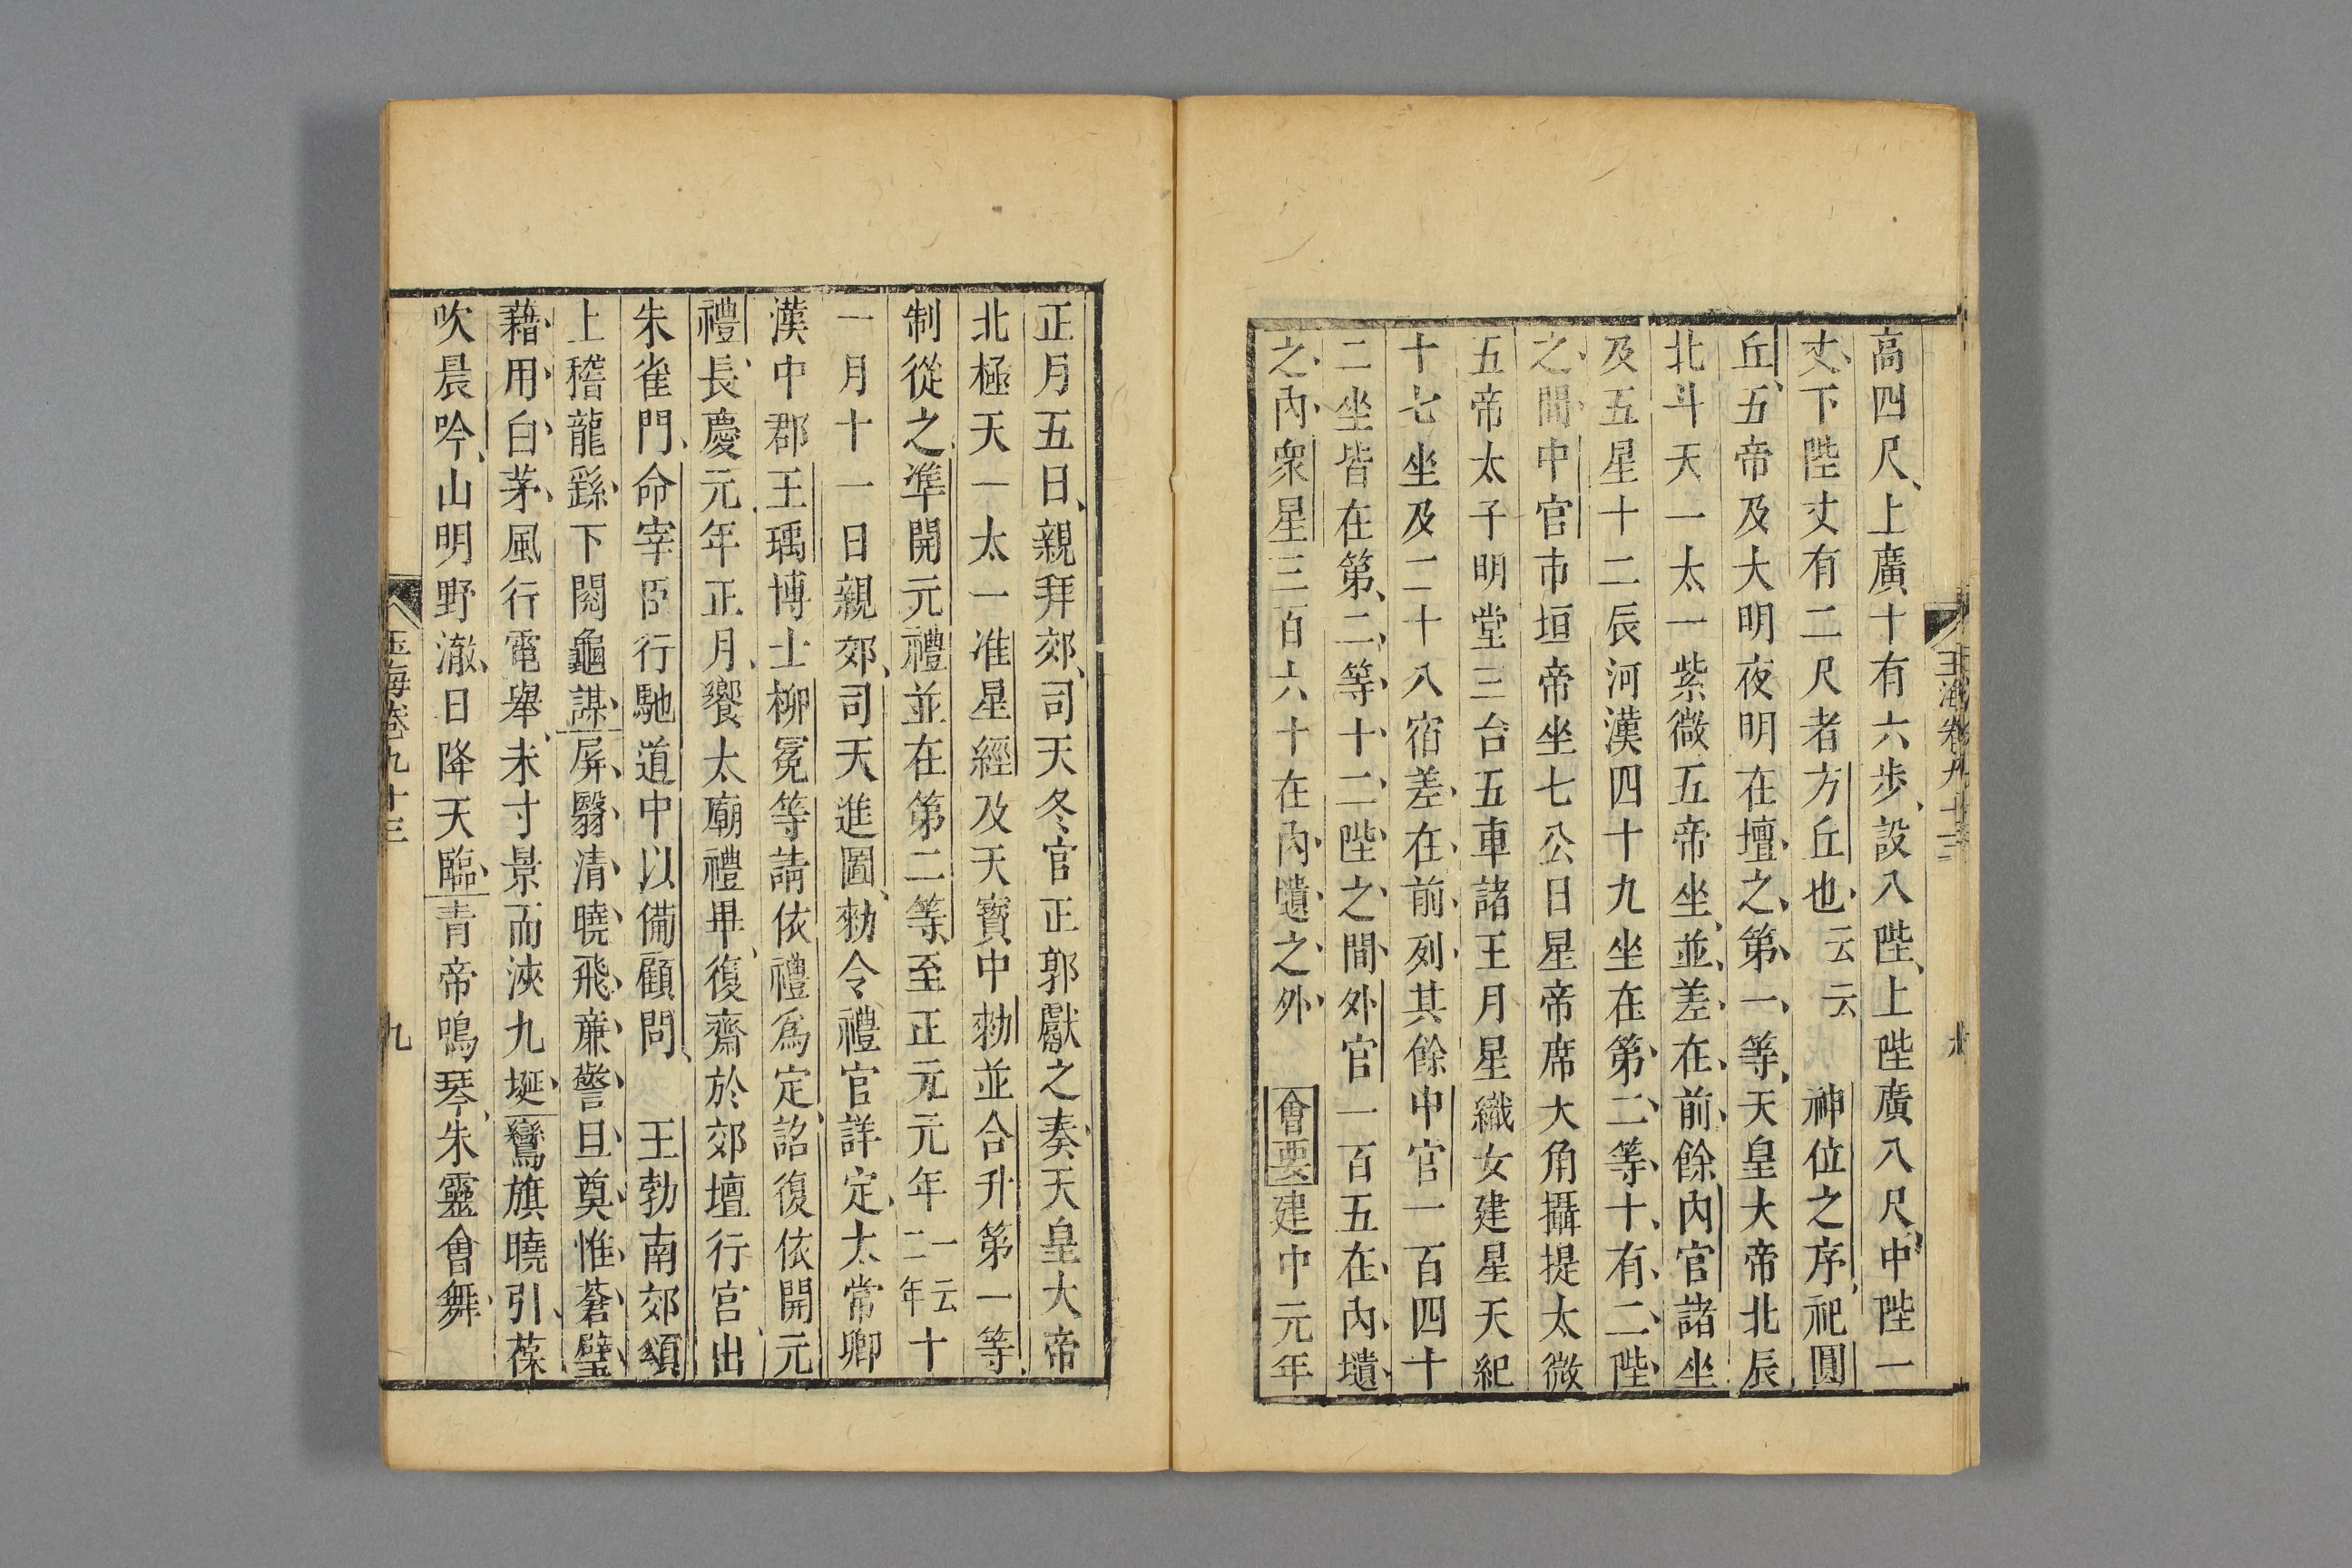 高四尺上廣十有六步設八陛上陛廣八尺中陛一
丈下陛丈有二尺者方丘也云云 神位之序祀圓
丘五帝及大明夜明在壇之第一等天皇大帝北辰
北斗天一太一紫微五帝坐並差在前餘內官諸坐
及五星十二辰河漢四十九坐在第二等十有二陛
之間中官市垣帝坐七公日星帝席大角攝提太微
五帝太子明堂三台五車諸王月星織女建星天紀
十七坐及二十八宿差在前列其餘中官一百四十
二坐皆在第二等十二陛之間外官一百五在內壝
之內衆星三百六十在內壝之外 會要建中元年
正月五日親拜郊司天冬官正郭獻之奏天皇大帝
北極天一太一准星經及天寶中勑並合升第一等
制從之準開元禮並在第二等至正元元年一云二年十
一月十一日親郊司天進圖勑令禮官詳定太常卿
漢中郡王瑀博士柳冕等請依禮爲定詔復依開元
禮長慶元年正月饗太廟禮畢復齋於郊壇行宮出
朱雀門命宰臣行馳道中以備顧問 王勃南郊頌
上稽龍繇下閱龜謀屏翳清曉飛亷警旦奠惟蒼璧
藉用白茅風行電舉未寸景而浹九埏鸞旗曉引葆
吹晨吟山明野澈日降天臨青帝鳴琴朱靈會舞
玉海卷九十三
九